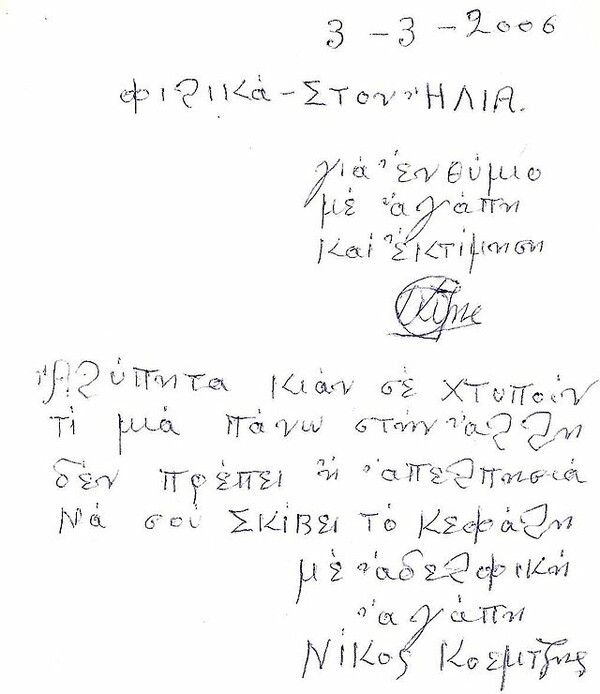 3 - 3 - 2006
φιλικά - ΣΤΟΝ ἨΛΙΑ.
γιά ἐνθύμιο
μέ ἀγάπη
και ἐκτίμηση
Ἀλύπητα κιάν σέ χτυποῦν
τί μιά πάνω στήν ἀλλη
δέν πρέπει ἡ ἀπελπησιά
Νά σοῦ ΣΚίΒΕΙ Τό ΚΕφάλη
μέ ἀδελφική
ἀγάπη
Νίκος Κοεμτζης